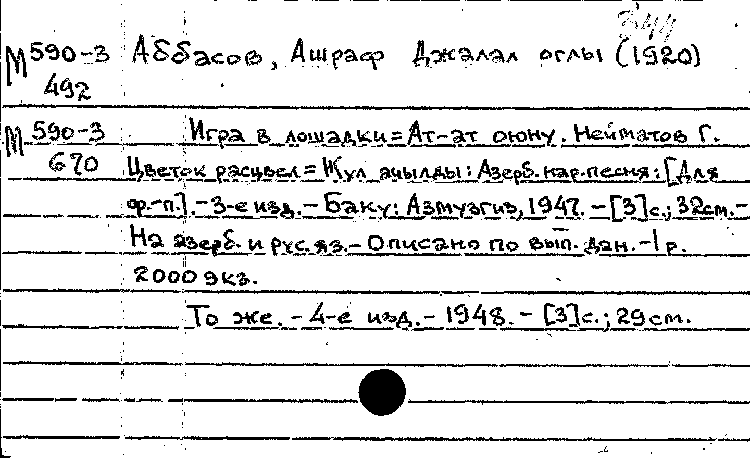 344
М 590-3 Аббасов, Ашраф Джалал оглы (1920)
492
М 590-3 Игра в лошадки = Ат-ат ојуну. Нейматов Г.
670 Цветок расцвел = Ҝүл ачылды: Азерб. нар. песня: [Для
ф.-п.]. - 3-е изд. - Баку: Азмузгиз, 1947. - [3] с.; 32 см. -
На азерб. и рус. яз. - Описано по вып. дан. - 1 р.
2000 экз.
То же. - 4-е изд. - 1948. - [3] с.; 29 см.